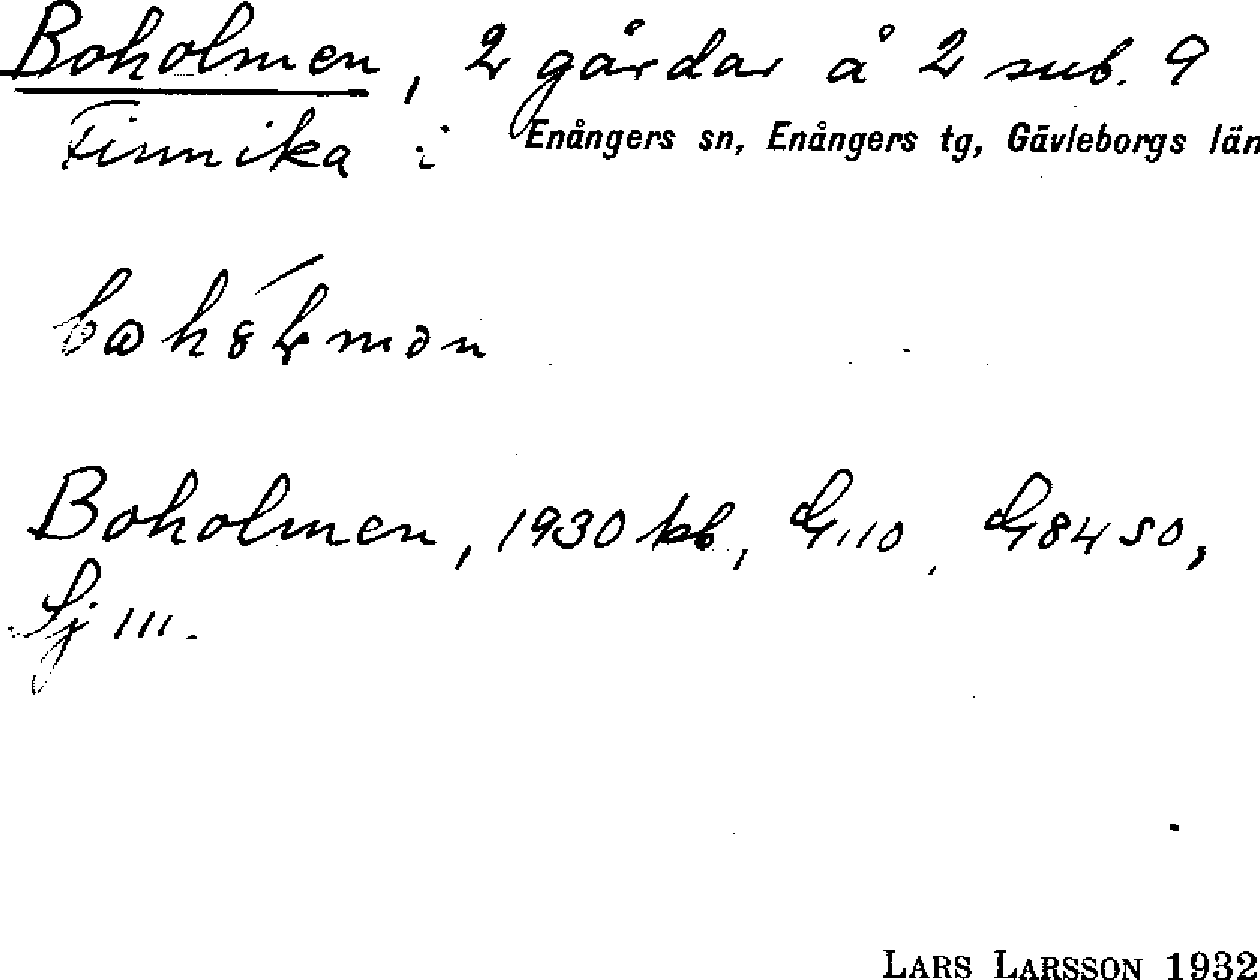 Boholmen, 2 gårdar å 2 sub. 9
Finnika i Enångers sn, Enångers tg, Gävleborgs län
Boholmen, 1930 kb., G 110, G 84 SO,
Sj III.
LARS LARSSON 1932